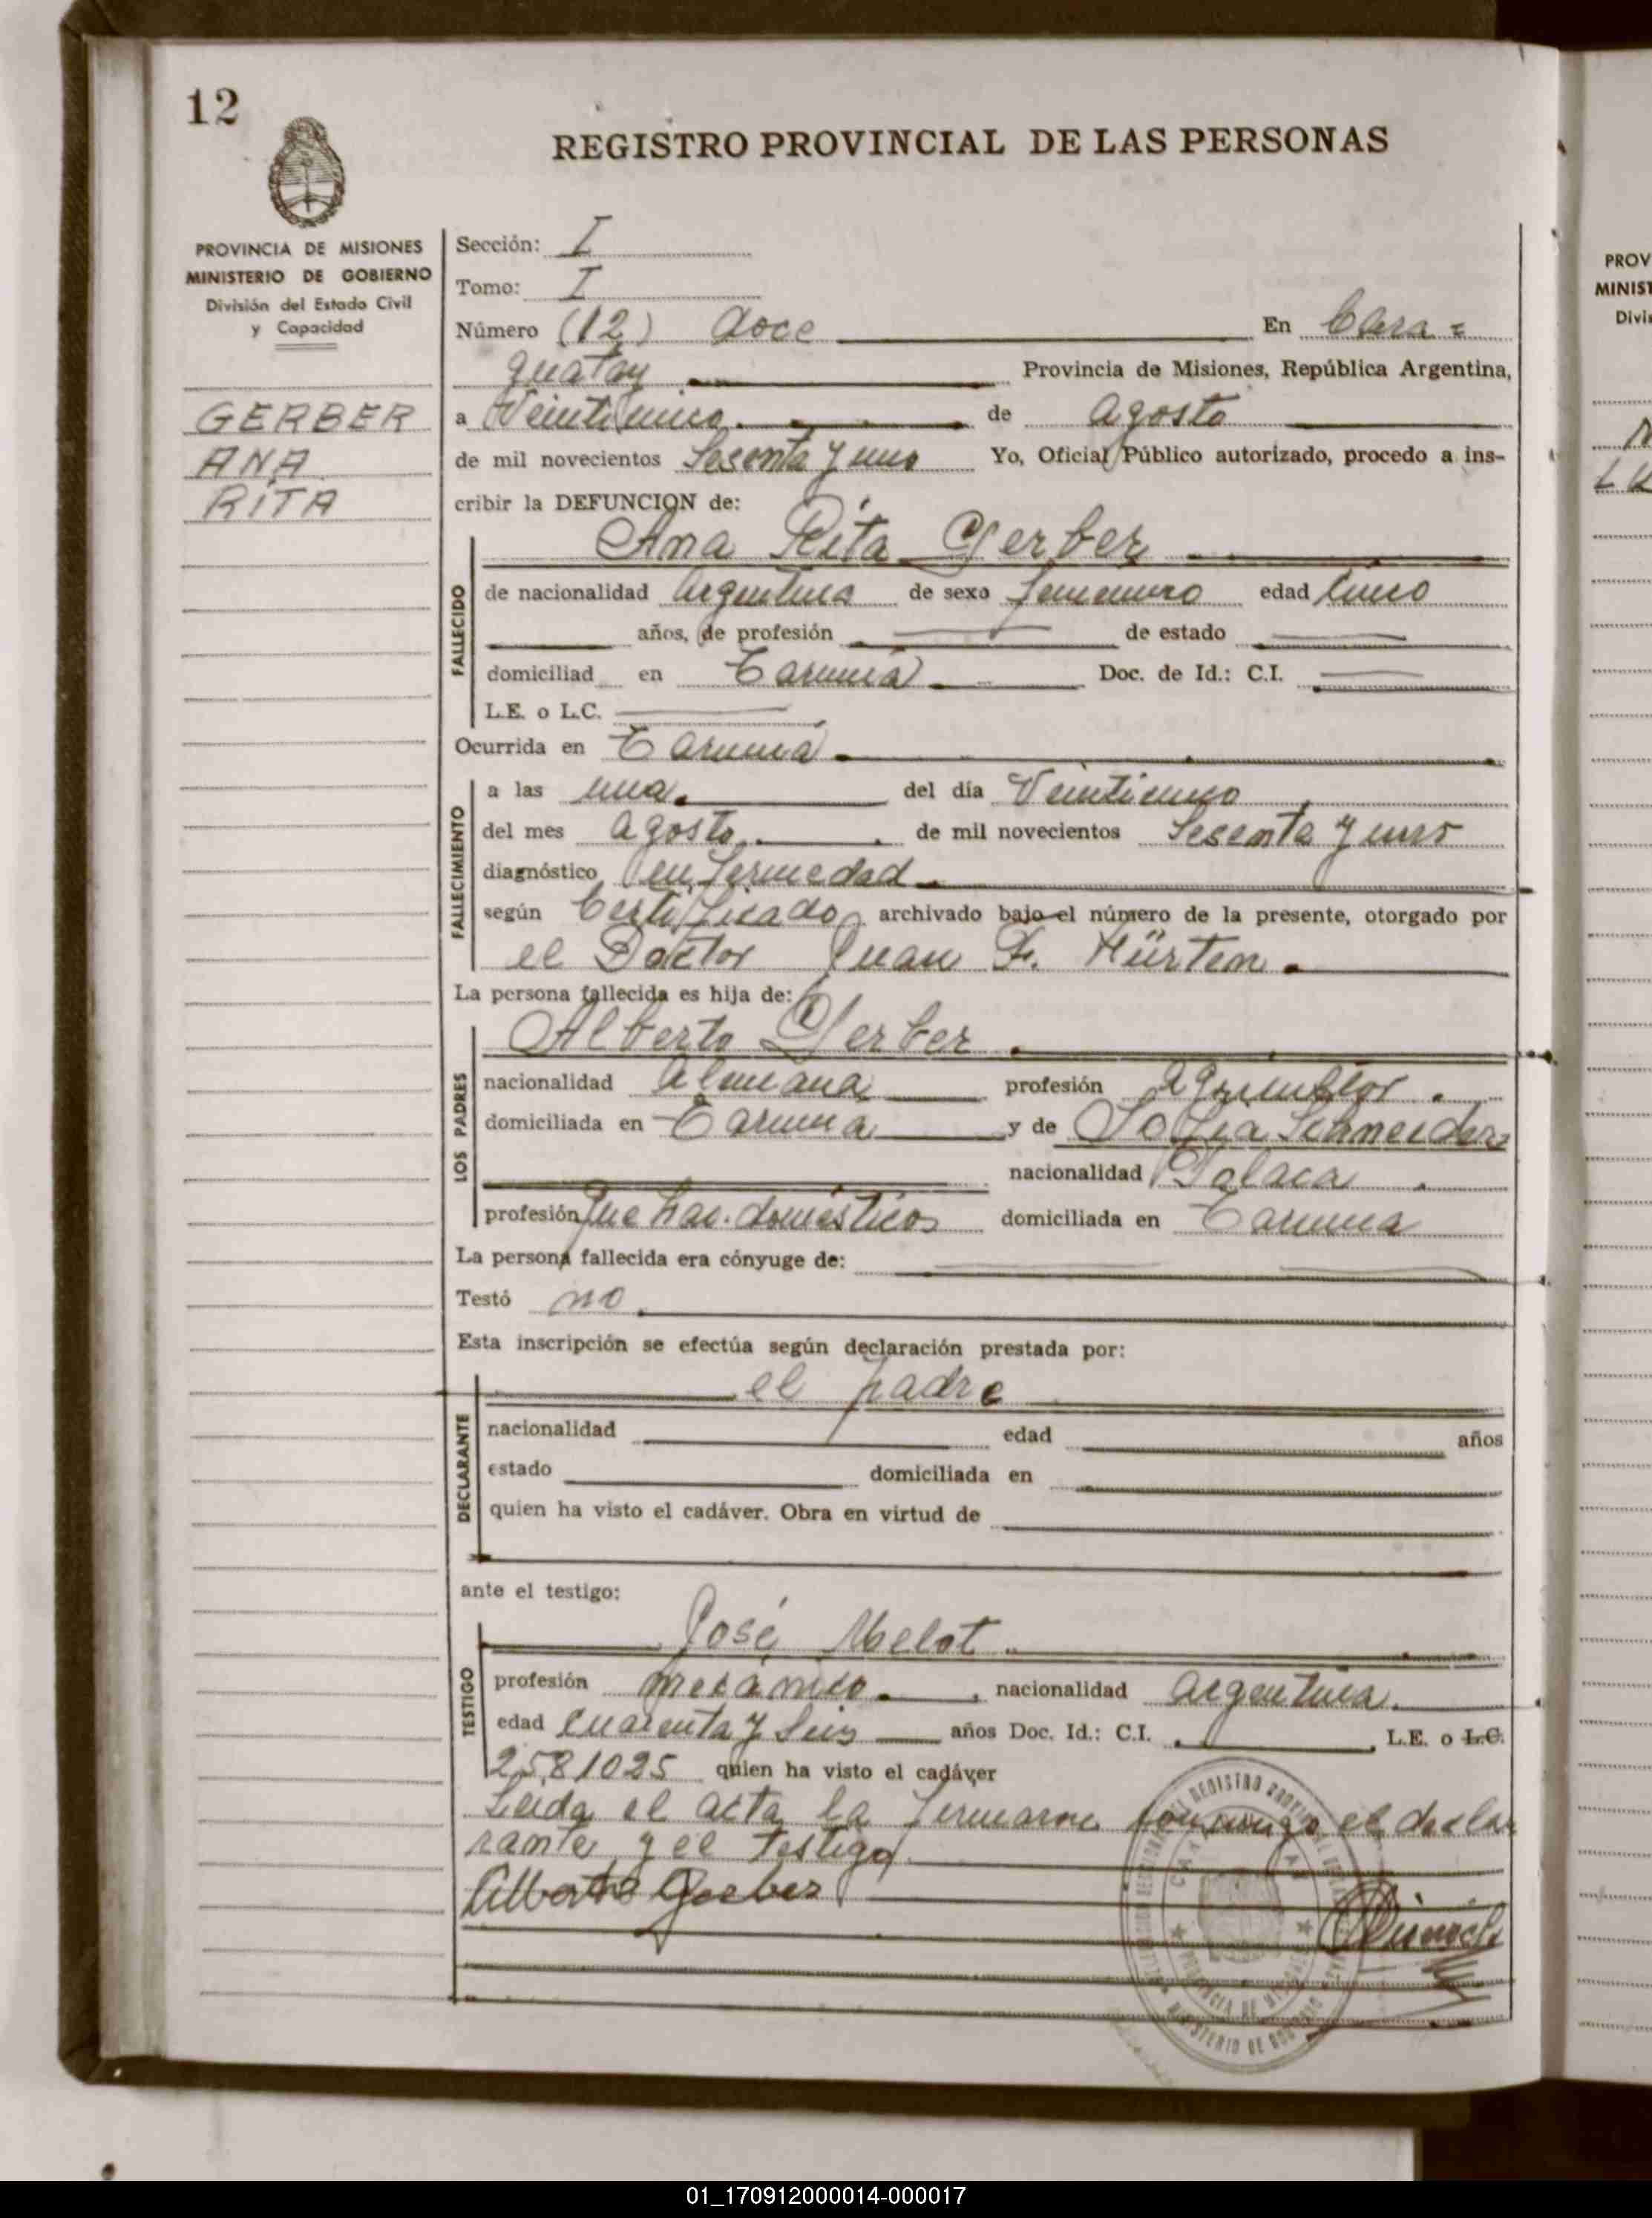 12
REGISTRO PROVINCIAL DE LAS PERSONAS
PROVINCIA DE MISIONES
MINISTERIO DE GOBIERNO
División del Estado Civil
y Capacidad
GERBER
ANA
RITA
Sección: I
Tomo: I
Número (12) doce En Cara=
guatay Provincia de Misiones, República Argentina,
a Veinticinco de agosto
de mil novecientos Sesenta y uno Yo, Oficial Público autorizado, procedo a ins-
cribir la DEFUNCION de:
Ana Rita Gerber
FALLECIDO
de nacionalidad argentina de sexo femenino edad Cinco
años, de profesión de estado
domiciliad en Tarumá Doc. de Id.: C.I.
L.E. o L.C.
Ocurrida en Tarumá
FALLECIMIENTO
a las una del día Veinticinco
del mes agosto de mil novecientos Sesenta y uno
diagnóstico enfermedad
según Certificado archivado bajo el número de la presente, otorgado por
el Doctor Juan F. Hürten
La persona fallecida es hija de:
Alberto Gerber
LOS PADRES
nacionalidad alemana profesión agricultor
domiciliada en Taruma y de Sofia Schneider
nacionalidad Polaca
profesión Que hac. domésticos domiciliada en Taruma
La persona fallecida era cónyuge de:
Testó no
Esta inscripción se efectúa según declaración prestada por:
el padre
DECLARANTE
nacionalidad edad años
estado domiciliada en
quien ha visto el cadáver. Obra en virtud de
ante el testigo:
José Melot
TESTIGO
profesión mecánico nacionalidad argentina
edad cuarenta y seis años Doc. Id.: C.I. L.E. o L.C.
2581025 quien ha visto el cadáver
Leida el acta la firmaron conmigo el decla
rante y el testigo
Alberto Gerber
REGISTRO PROVINCIAL
PROVINCIA DE MISIONES
MINISTERIO DE GOBIERNO
PROV
MINIST
Divis
01_170912000014-000017